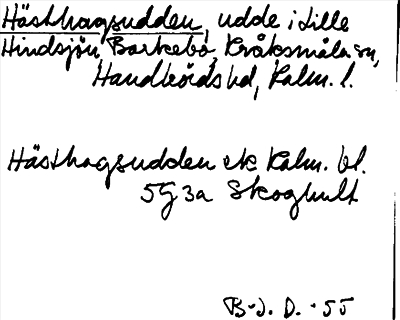 Hästhagsudden, udde i Lille
Hindsjön, Barkebo, Kråksmåla sn,
Handbörds hd, Kalm. l.
Hästhagsudden ek Kalm. bl.
5G3a Skoghult
B-J. D. -55